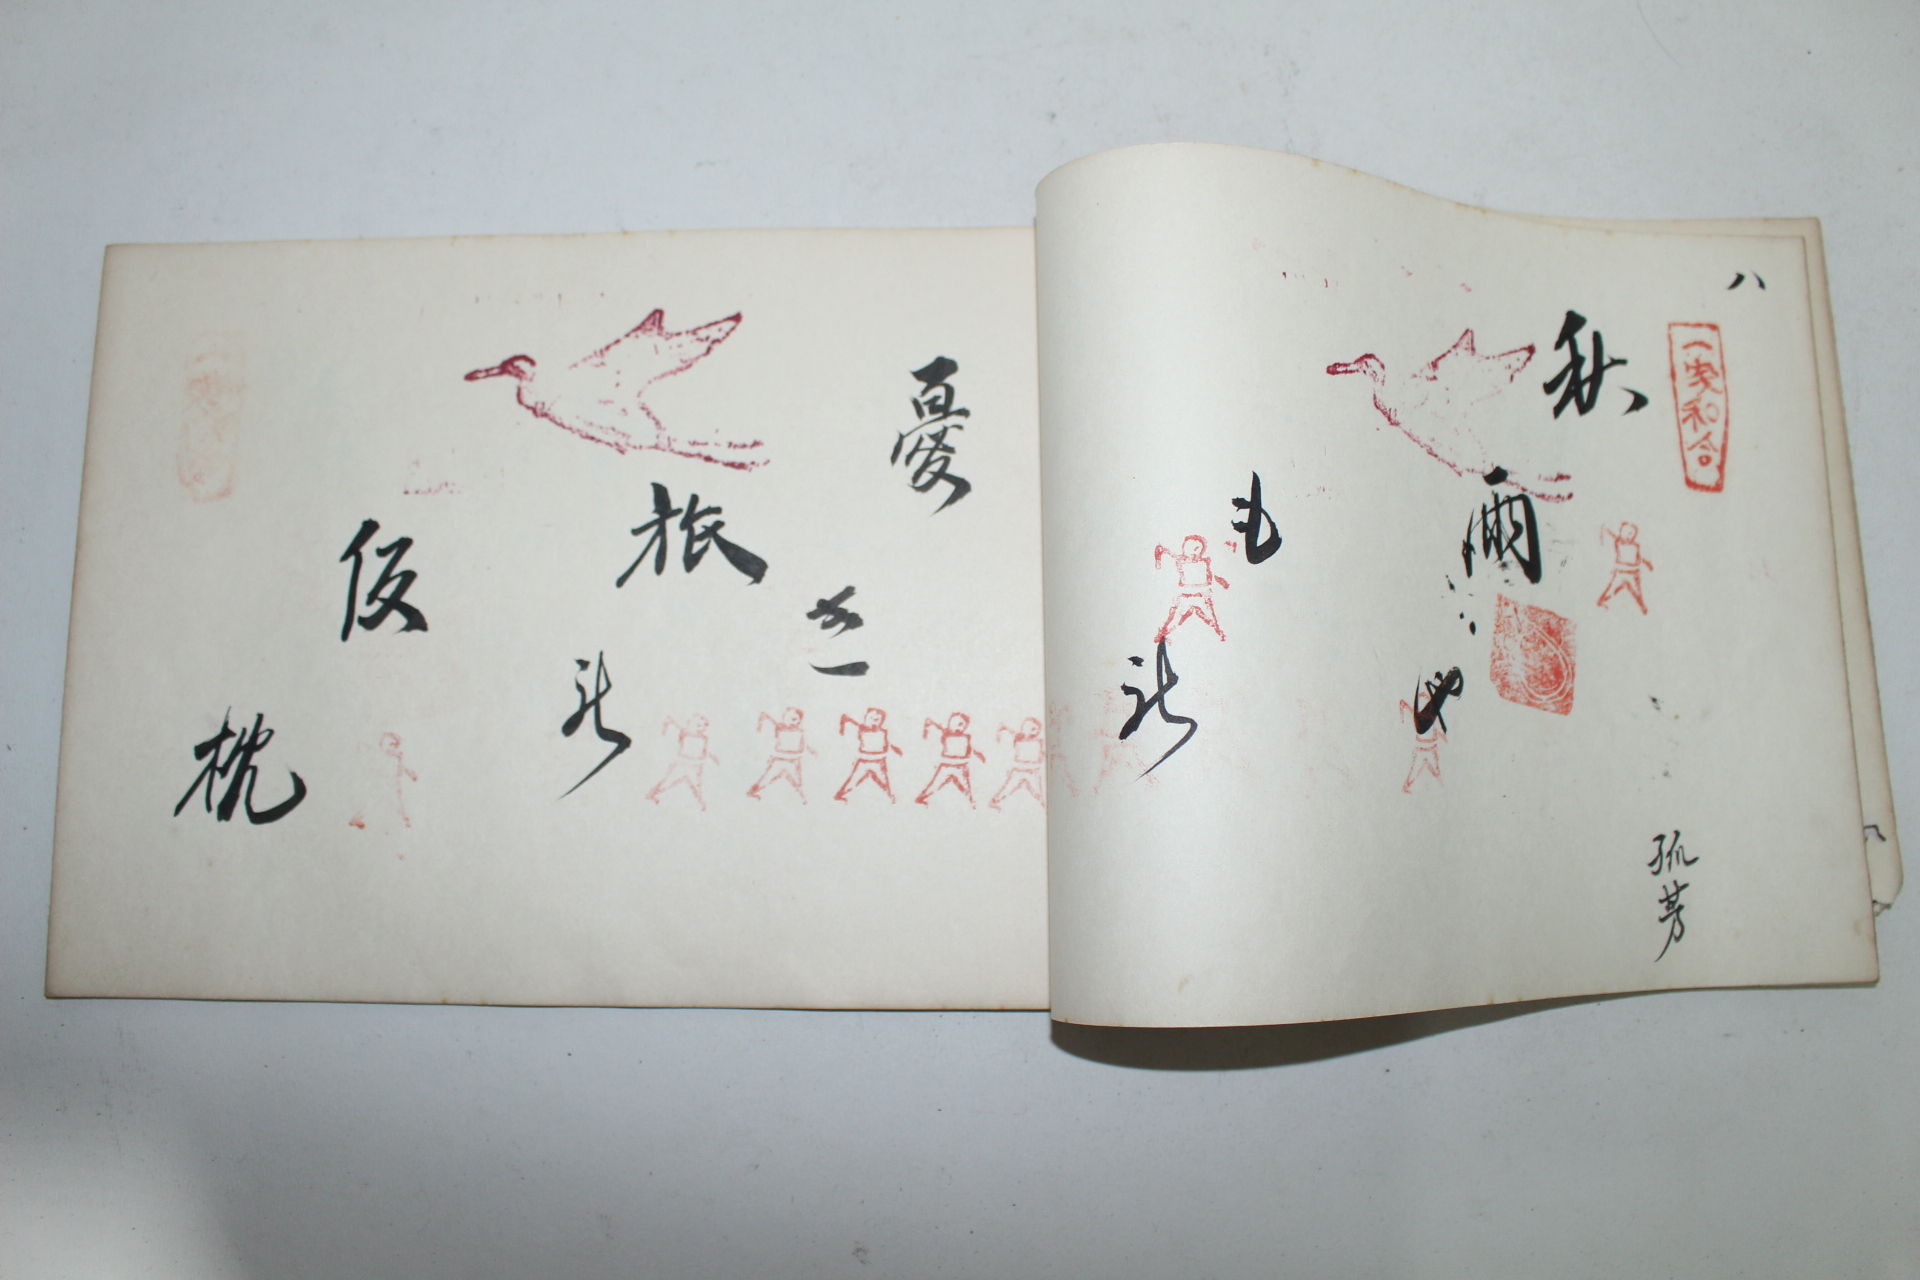 八
一家和合
孤芳
秋雨や
もの
憂き
旅の
仮枕